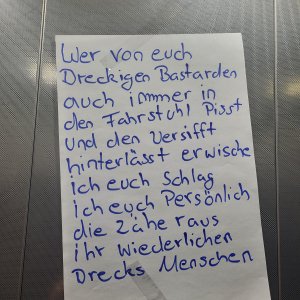 Wer von euch
Dreckigen Bastarden
auch immer in
den Fahrstuhl Pisst
und den Versifft
hinterlässt erwische
ich euch Schlag
ich euch Persönlich
die Zähe raus
ihr Wiederlichen
Drecks Menschen